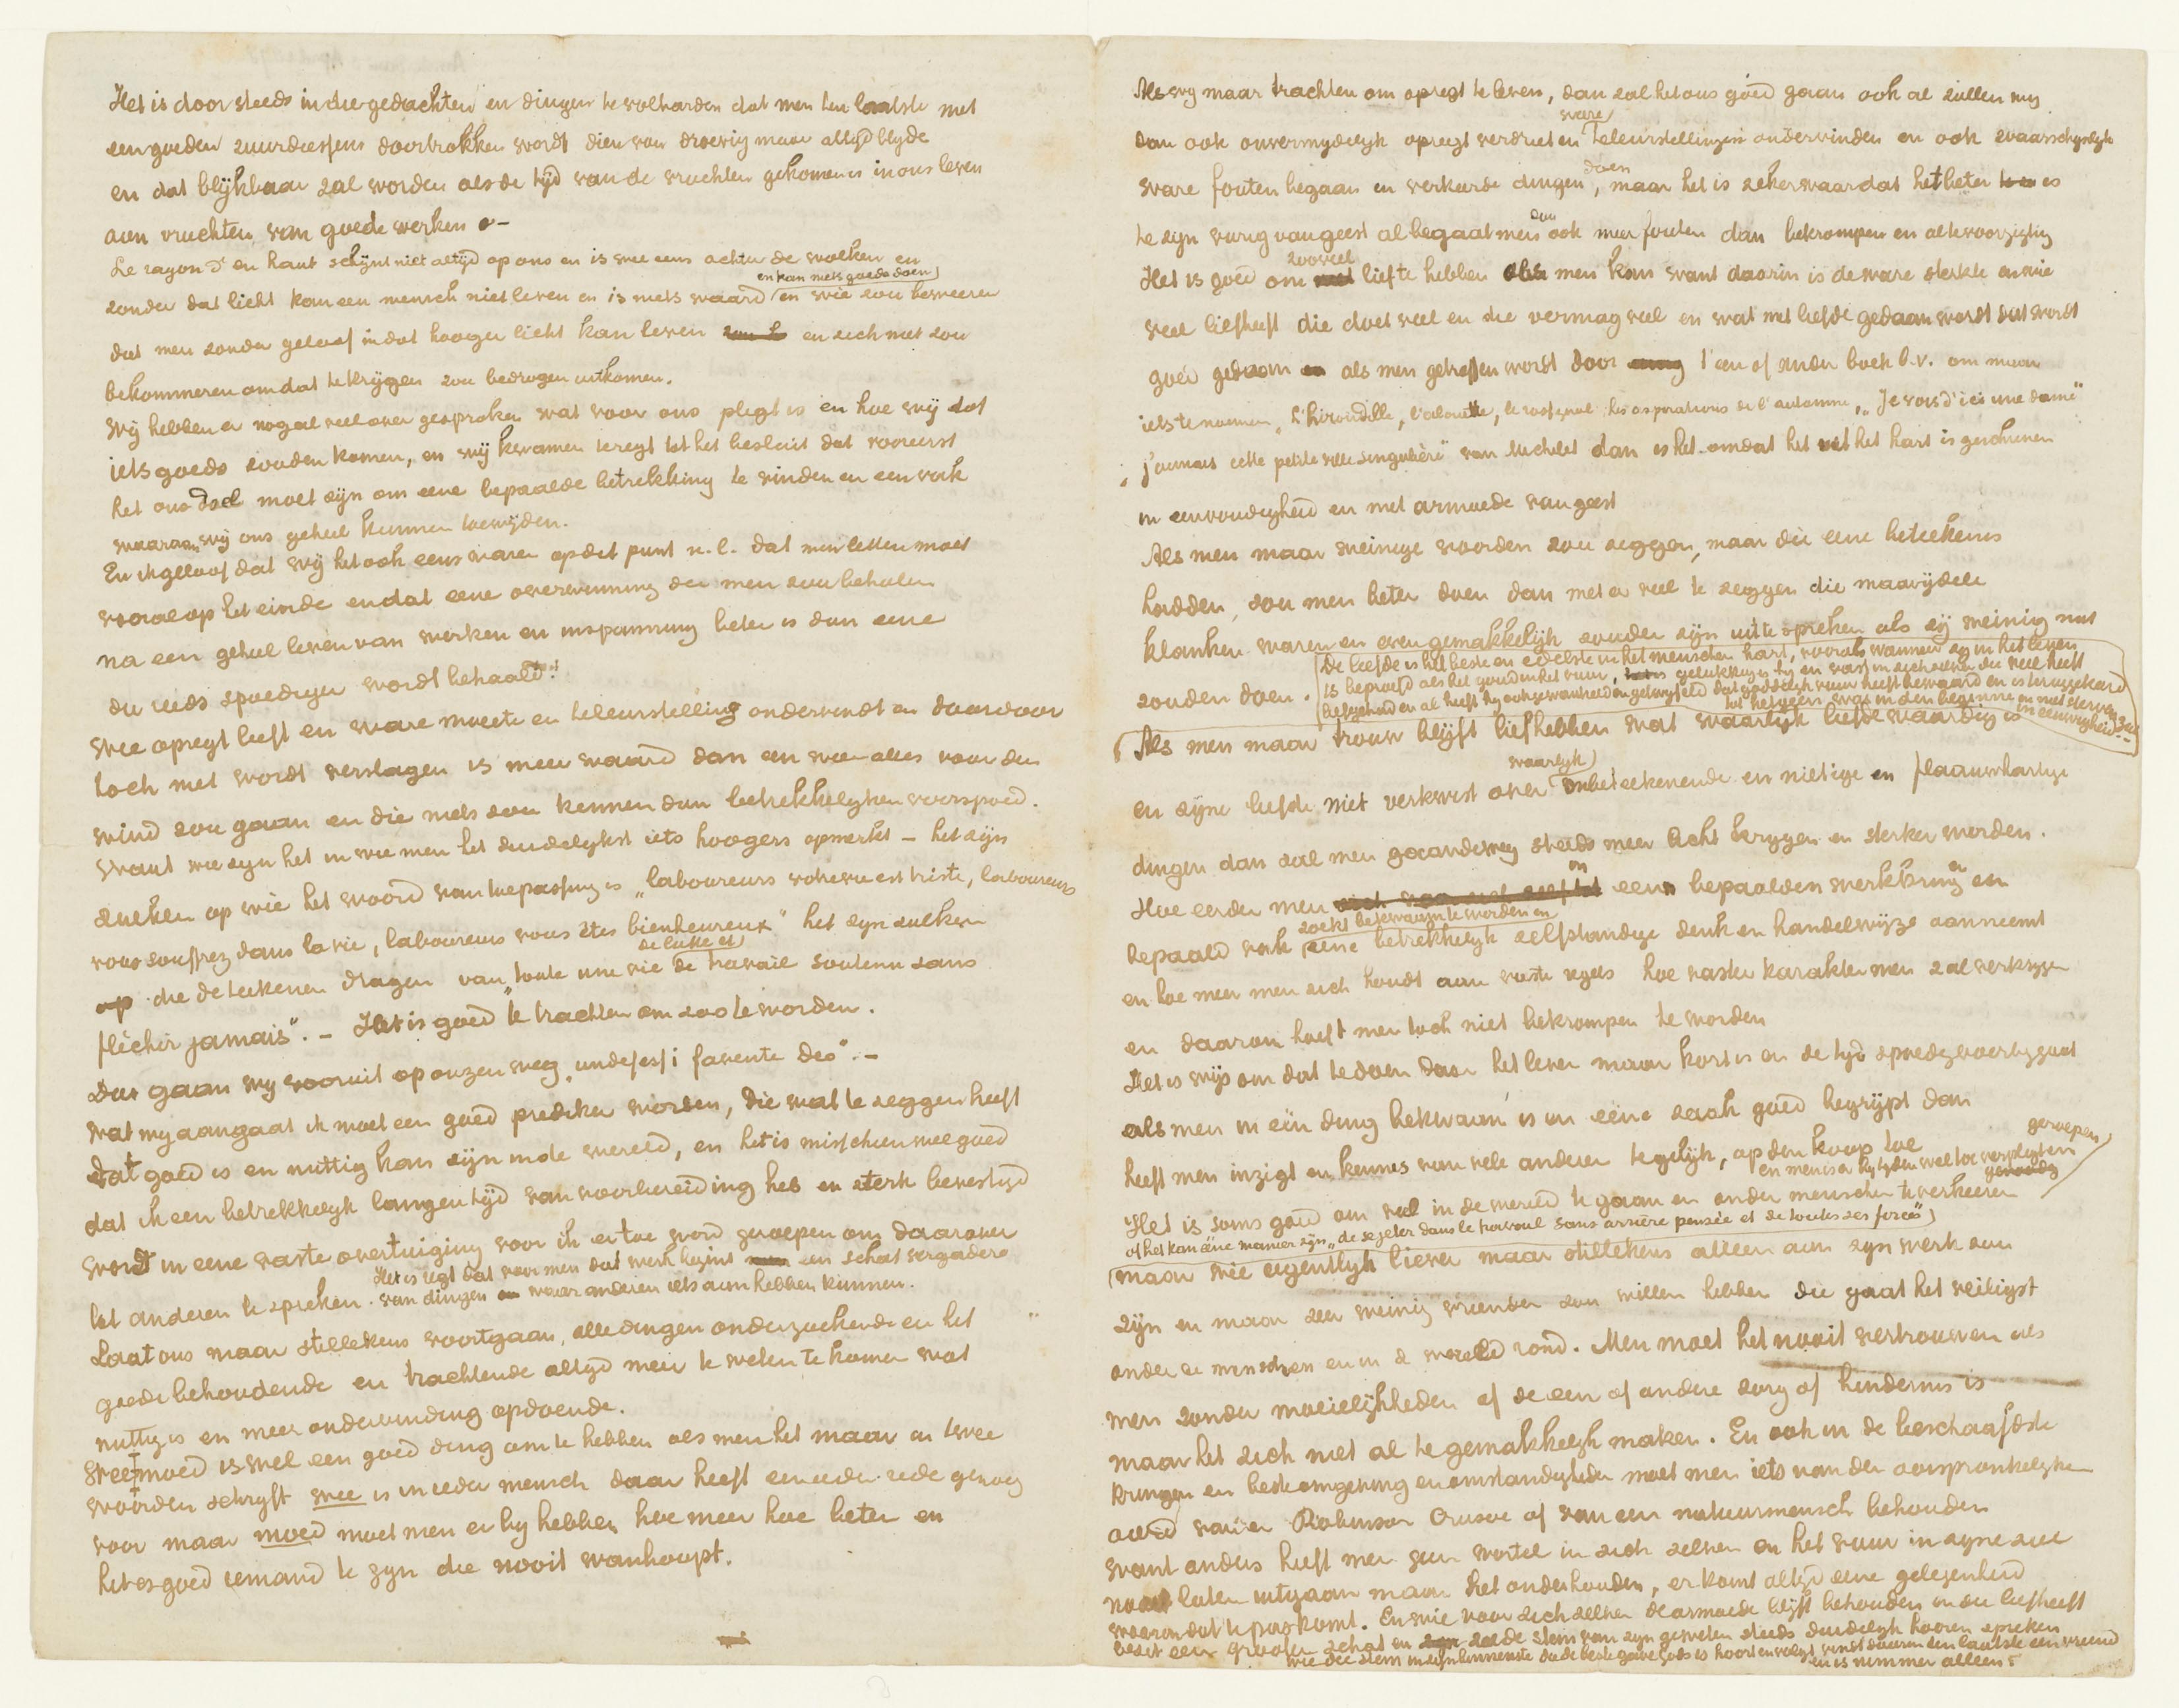 Het is door steeds in die gedachten en dingen te volharden dat men ten laatste met
een goeden zuurdeessem doortrokken wordt dien van droevig maar altijd blijde
en dat blijkbaar zal worden als de tijd van de vruchten gekomen is in ons leven
aan vruchten van goede werken.–
Le rayon d'en haut schijnt niet altijd op ons en is wel eens achter de wolken en
zonder dat licht kan een mensch niet leven en is niets waard en kan niets goeds doen en wie zou beweeren
dat men zonder geloof in dat hooger licht kan leven en zich niet zou
bekommeren om dat te krijgen zou bedrogen uitkomen.
Wij hebben er nogal veel over gesproken wat voor ons plegt is en hoe wij tot
iets goeds zouden komen, en wij kwamen teregt tot het besluit dat vooreerst
het ons doel moet zijn om eene bepaalde betrekking te vinden en een vak
waaraan wij ons geheel kunnen toewijden.
En ik geloof dat wij het ook eens waren op dit punt n.l. dat men letten moet
vooral op het einde en dat eene overwinning die men zou behalen
na een geheel leven van werken en inspanning beter is dan eene
die reeds spoediger wordt behaald!
Wie opregt leeft en ware moeite en teleurstelling ondervindt en daardoor
toch niet wordt verslagen is meer waard dan een wien alles voor den
wind zou gaan en die niets zou kennen dan betrekkelijken voorspoed.
Want wie zijn het in wie men het duidelijkst iets hoogers opmerkt – het zijn
zulken op wie het woord van toepassing is „laboureurs votre vie est triste, laboureurs
vous souffrez dans la vie, laboureurs vous êtes bienheureux" het zijn zulken
die de teekenen dragen van „toute une vie de lutte et de travail soutenu sans
fléchir jamais". – Het is goed te trachten om zoo te worden.
Dus gaan wij vooruit op onzen weg „indefessi favente Deo". –
Wat mij aangaat ik moet een goed prediker worden, die wat te zeggen heeft
dat goed is en nuttig kan zijn in de wereld, en het is misschien wel goed
dat ik een betrekkelijk langen tijd van voorbereiding heb en sterk bevestigd
word in eene vaste overtuiging voor ik er toe word geroepen om daarover
tot anderen te spreken. Het is regt dat voor men dat werk begint een schat vergadere
van dingen waar anderen iets aan hebben kunnen.
Laat ons maar stillekens voortgaan, alle dingen onderzoekende en het
goede behoudende en trachtende altijd meer te weten te komen wat
nuttig is en meer ondervinding opdoende.
Weemoed is wel een goed ding om te hebben als men het maar in twee
woorden schrijft wee is in ieder mensch daar heeft een ieder rede genoeg
voor maar moed moet men er bij hebben hoe meer hoe beter en
het is goed iemand te zijn die nooit wanhoopt.
Als wij maar trachten om opregt te leven, dan zal het ons goed gaan ook al zullen wij
dan ook onvermijdelijk opregt verdriet en ware teleurstellingen ondervinden en ook waarschijnlijk
ware fouten begaan en verkeerde dingen doen, maar het is zeker waar dat het beter is
te zijn vurig van geest al begaat men dan ook meer fouten dan bekrompen en al te voorzigtig
Het is goed om zooveel lief te hebben als men kan want daarin is de ware sterkte en wie
veel liefheeft die doet veel en die vermag veel en wat met liefde gedaan wordt dat wordt
goed gedaan als men getroffen wordt door 't een of ander boek b.v. om maar
iets te noemen „L'hirondelle, l'alouette, le rossignol, les aspirations de l'automne, „Je vois d'ici une dame"
„j'aimais cette petite ville singulière" van Michelet dan is het omdat het uit het hart is geschreven
in eenvoudigheid en met armoede van geest
Als men maar weinige woorden zou zeggen, maar die eene beteekenis
hadden, zou men beter doen dan met er veel te zeggen die maar ijdele
klanken waren en even gemakkelijk zouden zijn uit te spreken als zij weinig nut
zouden doen.
De liefde is het beste en edelste in het menschen hart, vooral wanneer zij in het leven
is beproefd als het goud in het vuur, gelukkig is hij en vast in zichzelven die veel heeft
liefgehad en al heeft hij ook gewankeld en getwijfeld dat goddelijk vuur heeft bewaard en is teruggekeerd
tot hetgeen was in den beginne en niet sterven zal
in eeuwigheid.
Als men maar trouw blijft liefhebben wat waarlijk liefdewaardig is
en zijne liefde niet verkwist over waarlijk onbeteekenende en nietige en flaauwhartige
dingen dan zal men gaandeweg steeds meer licht krijgen en sterker worden.
Hoe eerder men in een bepaalden werkkring en
bepaald vak zoekt bekwaam te worden en eene betrekkelijk zelfstandige denk en handelwijze aanneemt
en hoe meer men zich houdt aan vaste regels hoe vaster karakter men zal verkrijgen
en daarom hoeft men toch niet bekrompen te worden
Het is wijs om dat te doen daar het leven maar kort is en de tijd spoedig voorbijgaat
als men in één ding bekwaam is en ééne zaak goed begrijpt dan
heeft men inzigt en kennis van vele anderen tegelijk, op den koop toe
Het is soms goed om veel in de wereld te gaan en onder menschen te verkeeren en men is er bij tijden wel toe verpligt en geroepen
of het kan ééne manier zijn „de se jeter dans le travail sans arrière pensée et de toutes ses forces"
maar wie eigentlijk liever maar stillekens alleen aan zijn werk zou
zijn en maar zeer weinig vrienden zou willen hebben die gaat het veiligst
onder de menschen en in de wereld rond. Men moet het nooit vertrouwen als
men zonder moeielijkheden of de een of andere zorg of hindernis is
maar het zich niet al te gemakkelijk maken. En ook in de beschaafdste
kringen en beste omgeving en omstandigheden moet men iets van den oorspronkelijken
aard van een Robinson Crusoe of van een natuurmensch behouden
want anders heeft men geen wortel in zich zelven en het vuur in zijne ziel
nooit laten uitgaan maar het onderhouden, er komt altijd eene gelegenheid
waarin dat te pas komt. En wie voor zich zelven de armoede blijft behouden en die liefheeft
bezit een grooten schat en zal de stem van zijn geweten steeds duidelijk hooren spreken
wie die stem in zijn binnenste die de beste gave Gods is hoort en volgt vindt daarin ten laatste een vriend
en is nimmer alleen.